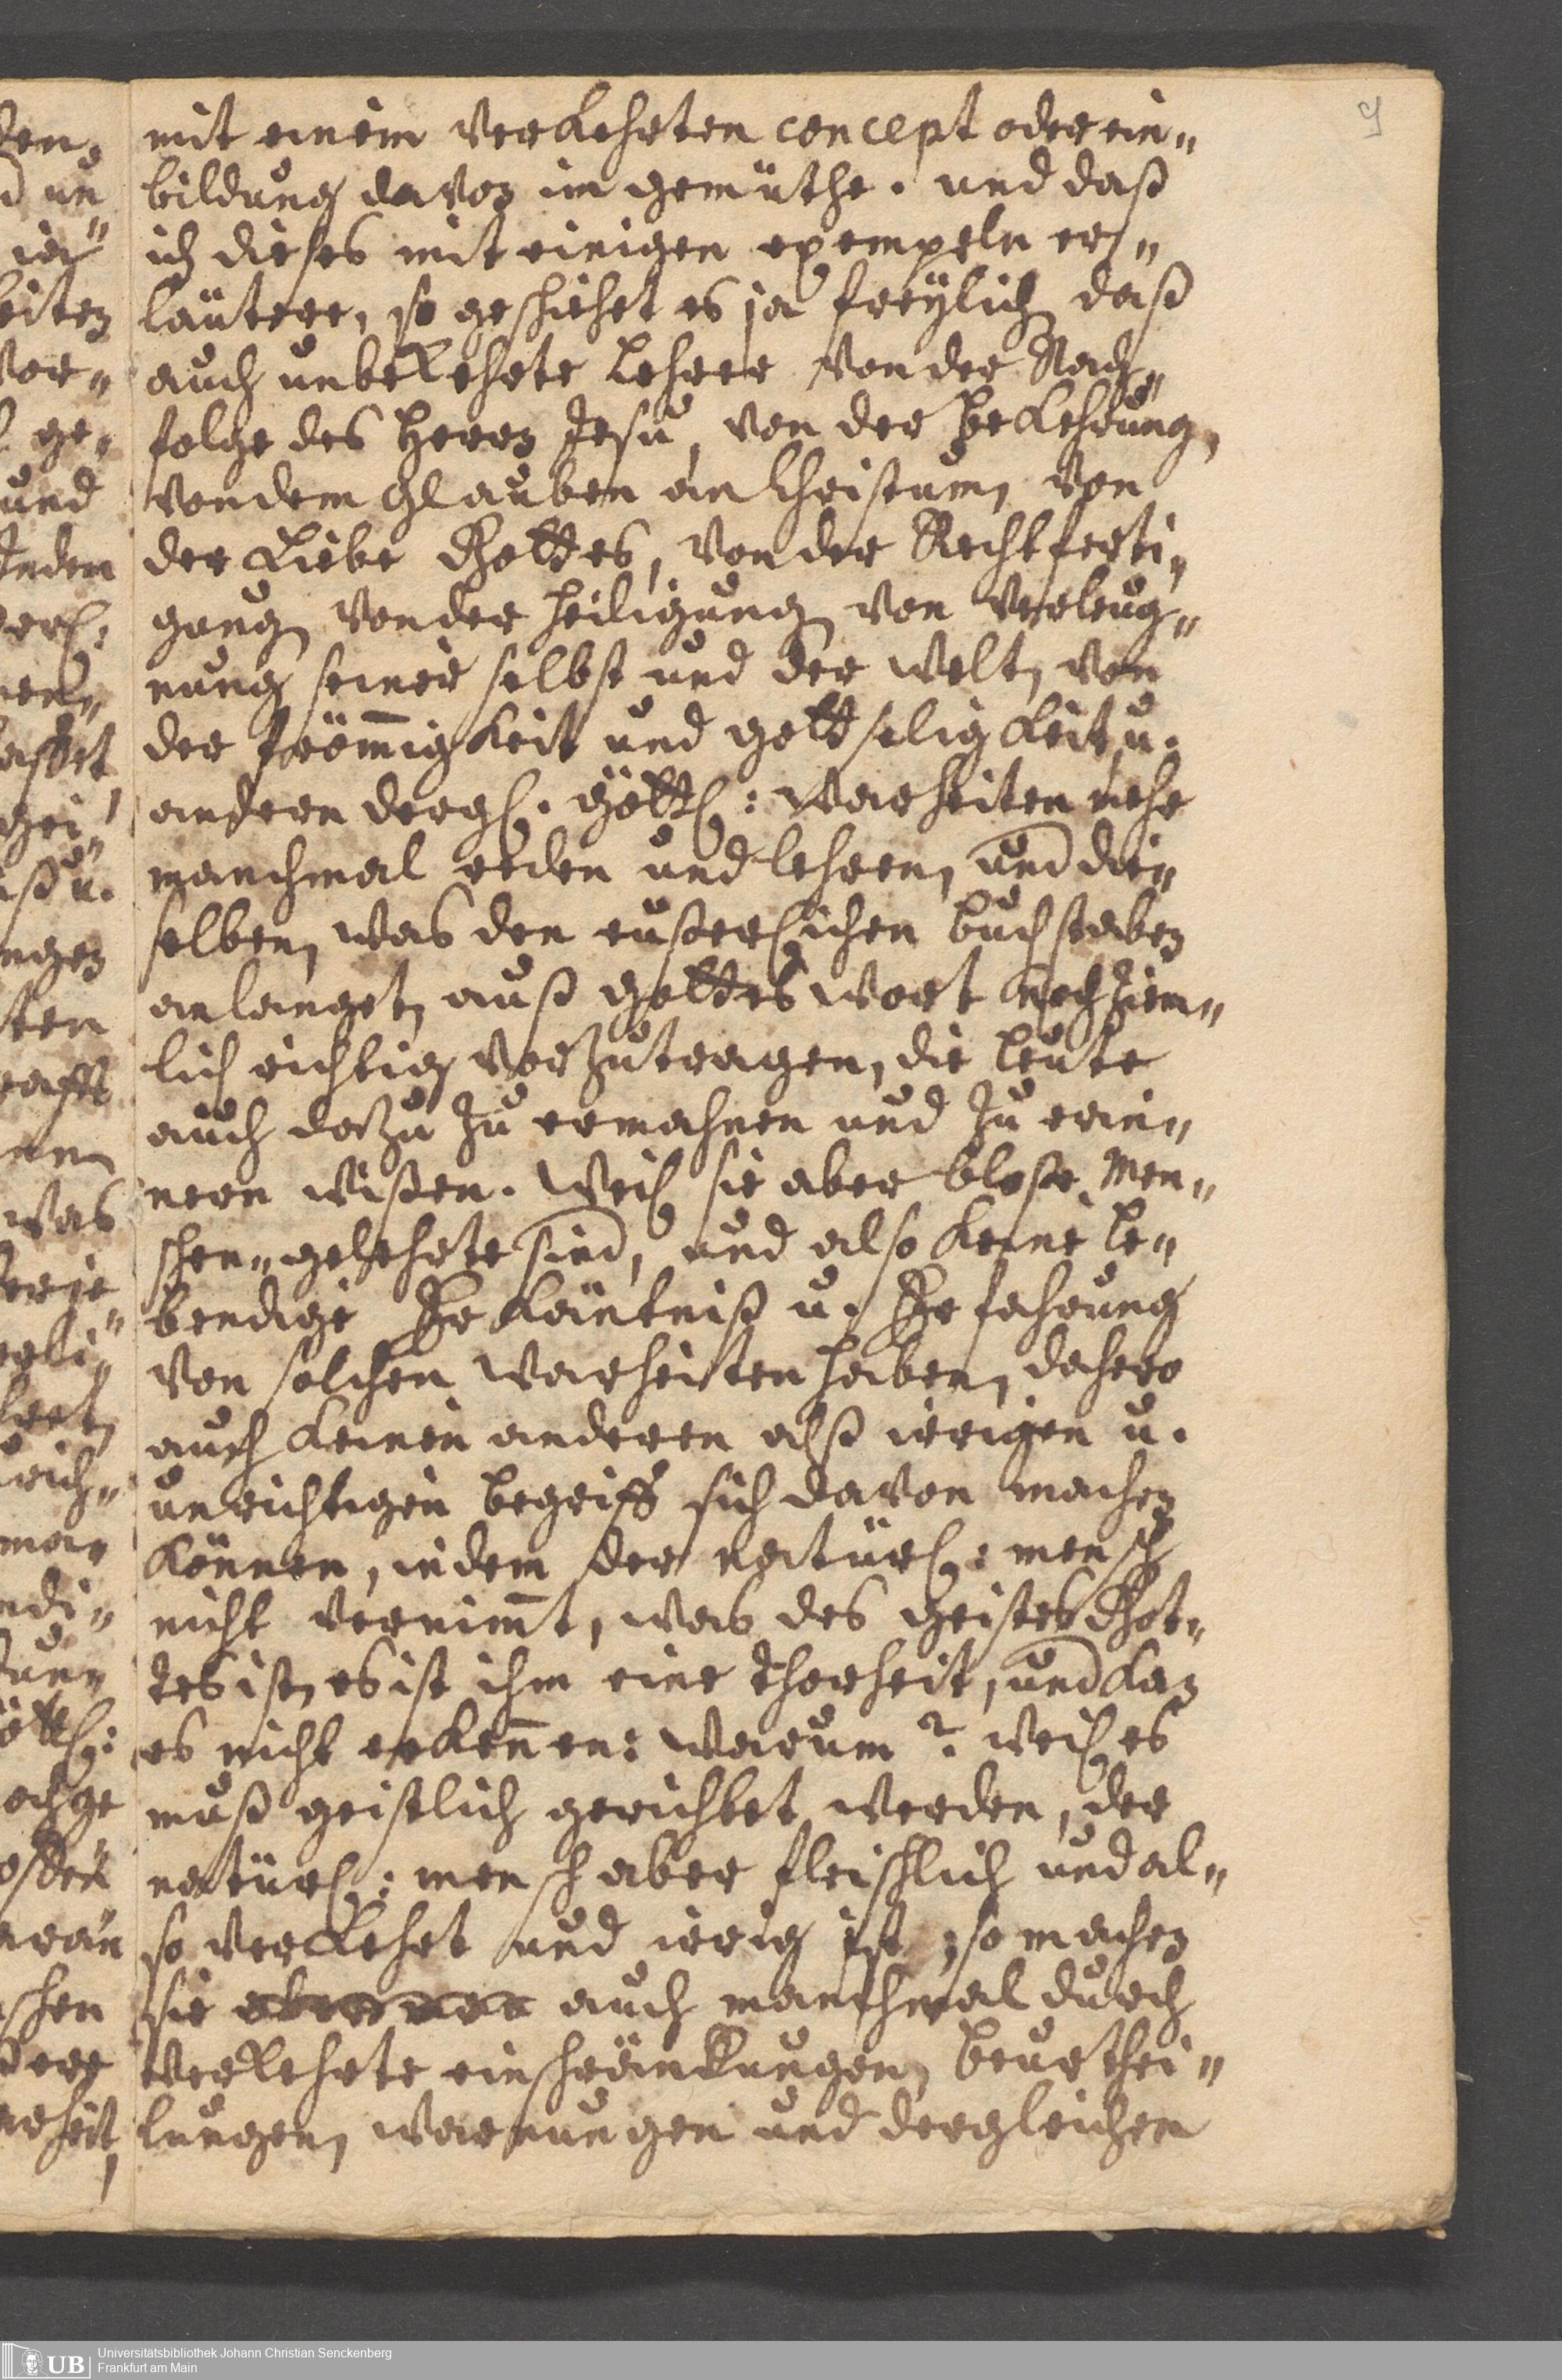 9
mit einem verkehrten concept oder ein-
bildung davon im gemüthe. und daß
ich dieses mit einigen exempeln er-
läutere, so geschiehet es ja freÿlich daß
auch unbekehrte Lehrer von der Nach-
folge des Herrn Jesu, von der Bekehrung,
von dem Glauben an Christum, von
der Liebe Gottes, von der Rechtferti-
gung, von der Heiligung, von verleug-
nung seiner selbst und der welt, von
der Frömmigkeit und gottseligkeit, u.
andern dergl. göttl: warheiten mehr
manchmal reden und lehren, und die-
selben, was den eußerlichen buchstaben
anlanget, auß Gottes wort noch ziem-
lich richtig vorzutragen, die leute
auch dazu zu ermahnen und zu erin-
nern wißen. Weil sie aber bloße Men-
schen-gelehrte sind, und also keine le-
bendige Erkäntniß u. Erfahrung
von solchen warheiten haben, dahero
auch keinen anderen alß irrigen u.
unrichtigen begriff sich davon machen
können, indem der natürl: mensch
nicht vernimt, was des geistes Got-
tes ist, es ist ihm eine thorheit, und kan
es nicht erkennen: warum? weil es
muß geistlich gerichtet werden, der
natürl: mensch aber fleischlich und al-
so verkehrt und irrig ist; so machen
sie auch manchmal durch
verkehrte einschränkungen, beurthei-
lungen, warnungen und dergleichen
UB Universitätsbibliothek Johann Christian Senckenberg
Frankfurt am Main